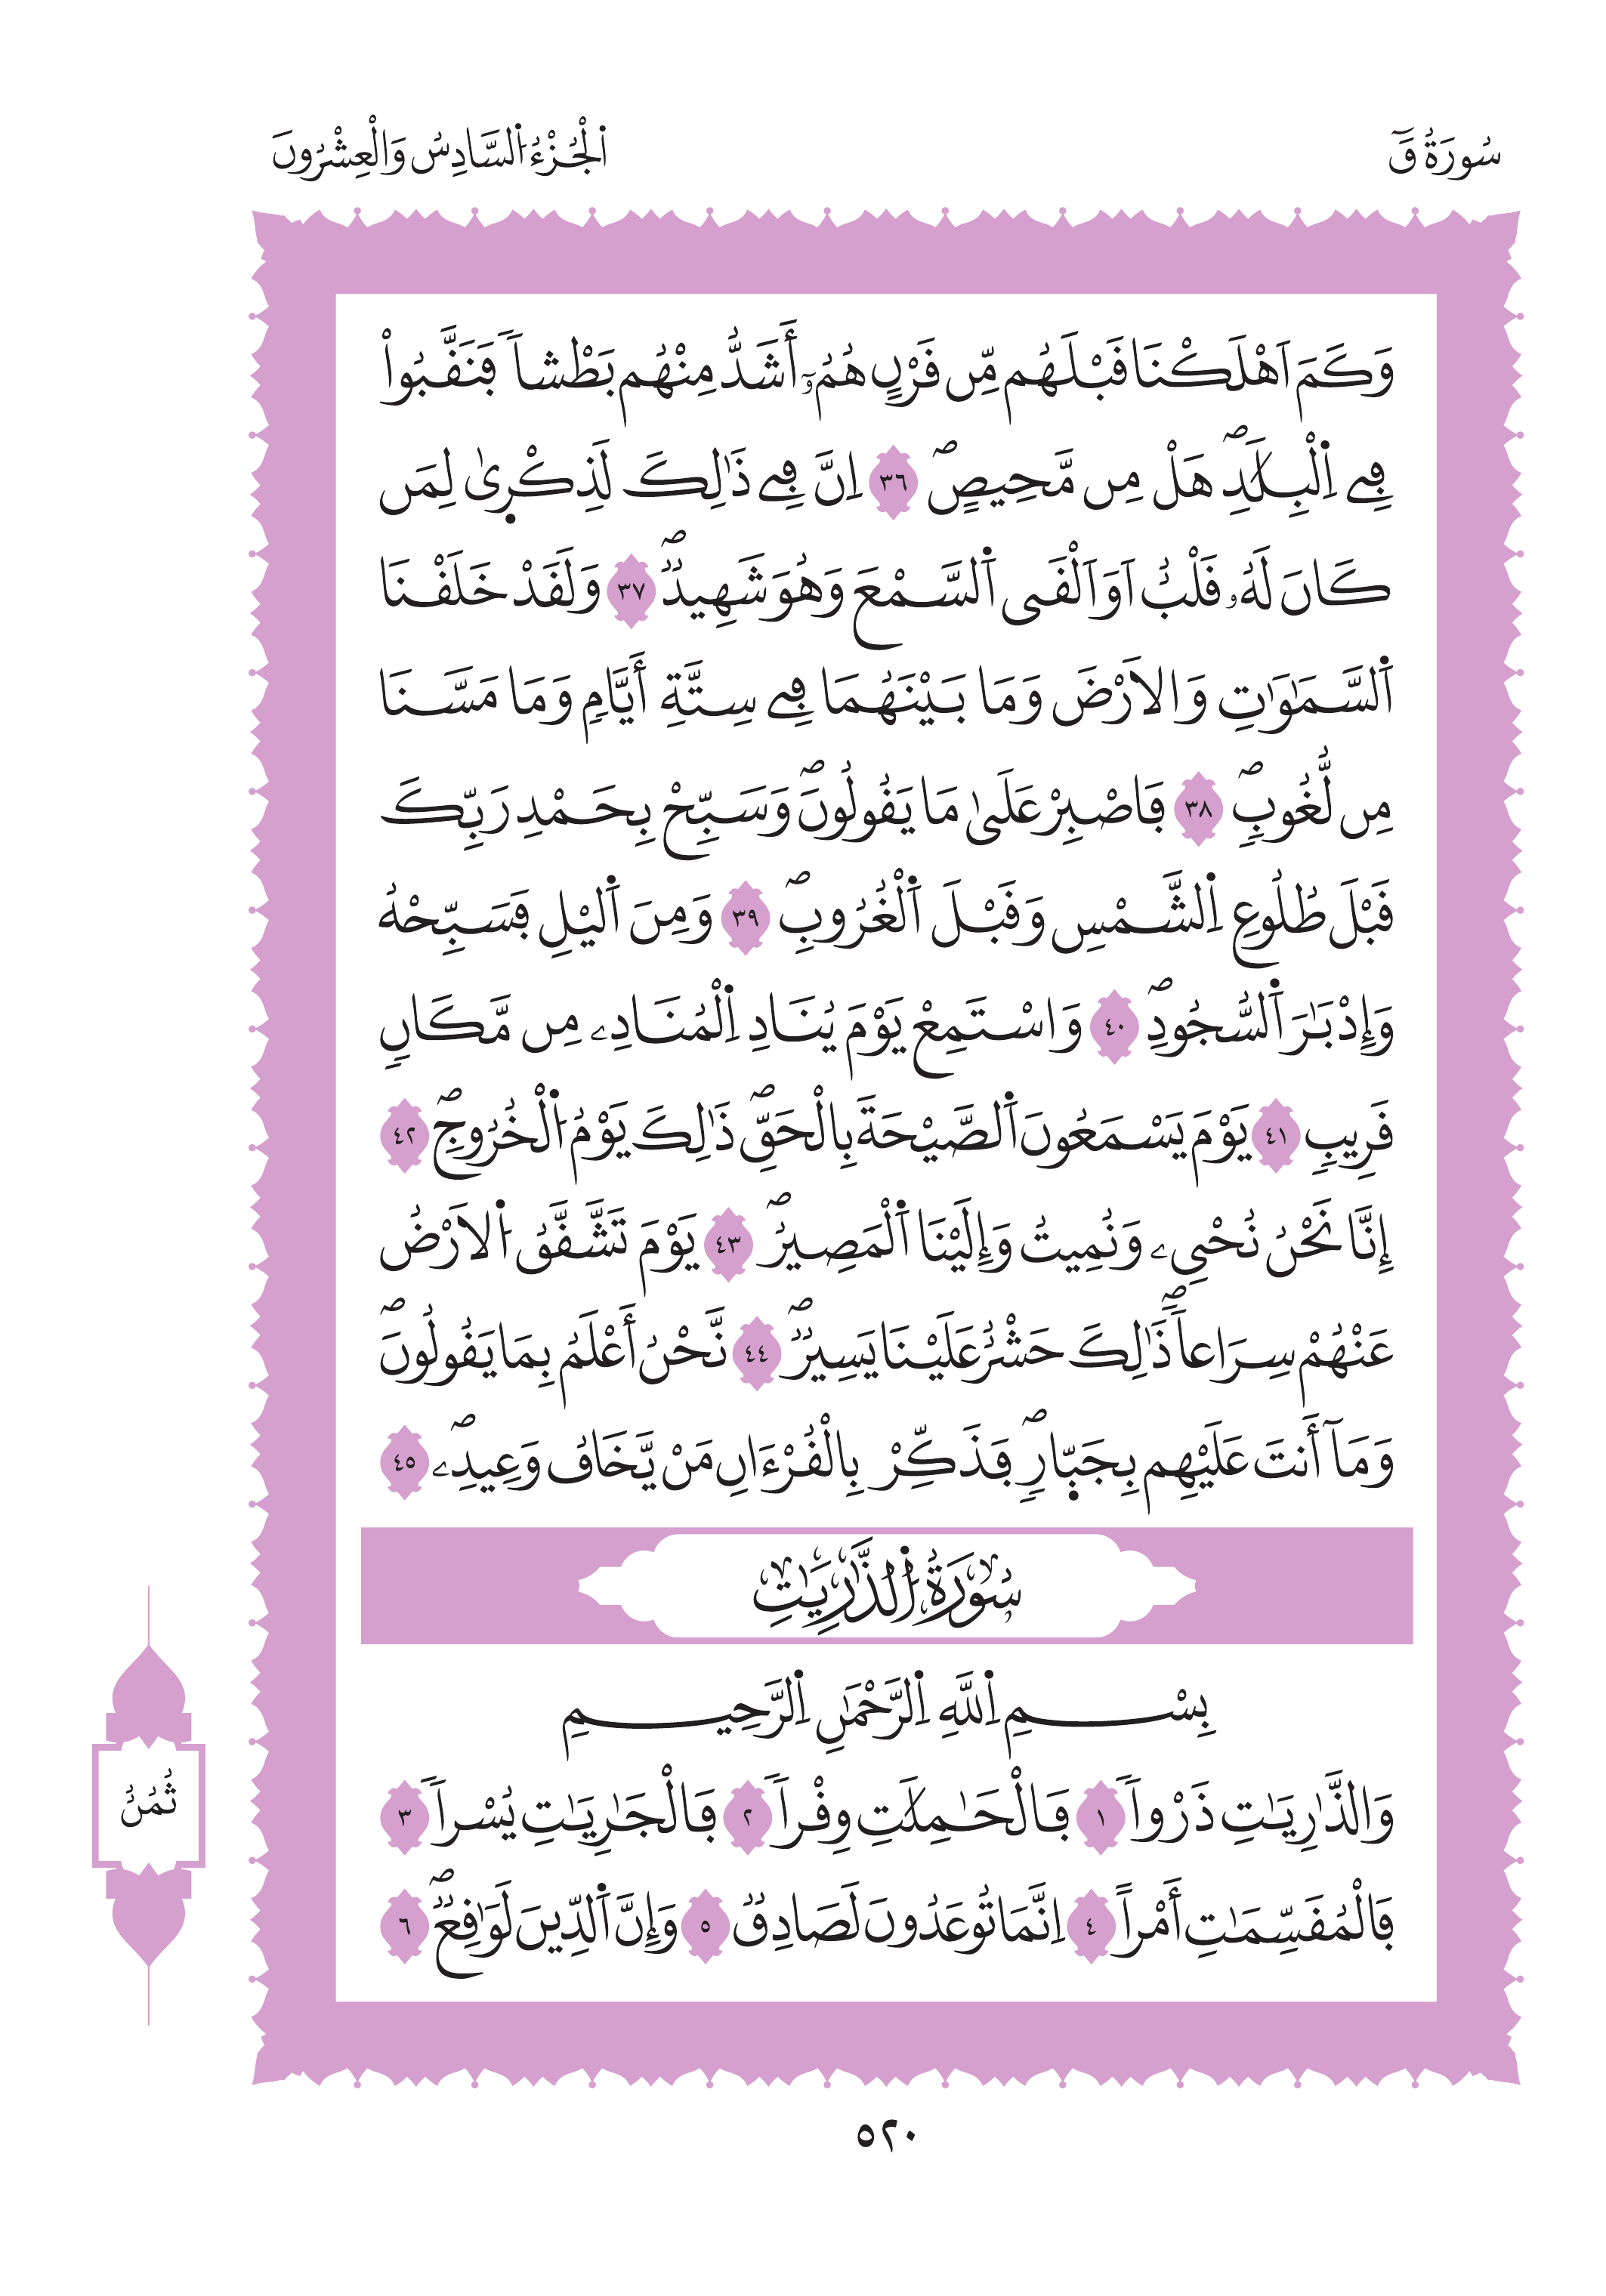 سُورَةُ قَٓ
اَ۬لْجُزْءُ اُ۬لسَّادِسُ وَالْعِشْرُونَ
وَكَمَ اَهْلَكْنَا قَبْلَهُم مِّن قَرْنٍ هُمُۥٓ أَشَدُّ مِنْهُم بَطْشاٗ فَنَقَّبُواْ
فِے اِ۬لْبِلَٰدِۖ هَلْ مِن مَّحِيصٍۖ ٣٦ اِنَّ فِے ذَٰلِكَ لَذِكْر۪يٰ لِمَن
كَانَ لَهُۥ قَلْبٌ اَوَ اَلْقَي اَ۬لسَّمْعَ وَهُوَ شَهِيدٞۖ ٣٧ وَلَقَدْ خَلَقْنَا
اَ۬لسَّمَٰوَٰتِ وَالَارْضَ وَمَا بَيْنَهُمَا فِے سِتَّةِ أَيَّامٖ وَمَا مَسَّنَا
مِن لُّغُوبٖۖ ٣٨ فَاصْبِرْ عَلَيٰ مَا يَقُولُونَۖ وَسَبِّحْ بِحَمْدِ رَبِّكَ
قَبْلَ طُلُوعِ اِ۬لشَّمْسِ وَقَبْلَ اَ۬لْغُرُوبِۖ ٣٩ وَمِنَ اَ۬ليْلِ فَسَبِّحْهُ
وَإِدْبَٰرَ اَ۬لسُّجُودِۖ ٤٠ وَاسْتَمِعْ يَوْمَ يُنَادِ اِ۬لْمُنَادِۦ مِن مَّكَانٖ
قَرِيبٖ ٤١ يَوْمَ يَسْمَعُونَ اَ۬لصَّيْحَةَ بِالْحَقِّۖ ذَٰلِكَ يَوْمُ اُ۬لْخُرُوجِۖ ٤٢
إِنَّا نَحْنُ نُحْيِۦ وَنُمِيتُ وَإِلَيْنَا اَ۬لْمَصِيرُۖ ٤٣ يَوْمَ تَشَّقَّقُ اُ۬لَارْضُ
عَنْهُمْ سِرَاعاٗۖ ذَٰلِكَ حَشْرٌ عَلَيْنَا يَسِيرٞۖ ٤٤ نَّحْنُ أَعْلَمُ بِمَا يَقُولُونَۖ
وَمَآ أَنتَ عَلَيْهِم بِجَبّ۪ارٖۖ فَذَكِّرْ بِالْقُرْءَانِ مَنْ يَّخَافُ وَعِيدِۦۖ ٤٥
سُورَةُ اُ۬لذَّٰرِيَٰتِ
بِسْمِ اِ۬للَّهِ اِ۬لرَّحْمَٰنِ اِ۬لرَّحِيمِ
وَالذَّٰرِيَٰتِ ذَرْواٗ ١ فَالْحَٰمِلَٰتِ وِقْراٗ ٢ فَالْجَٰرِيَٰتِ يُسْراٗ ٣
فَالْمُقَسِّمَٰتِ أَمْراً ٤ اِنَّمَا تُوعَدُونَ لَصَادِقٞ ٥ وَإِنَّ اَ۬لدِّينَ لَوَٰقِعٞۖ ٦
ثُمُنُ
٥٢٠